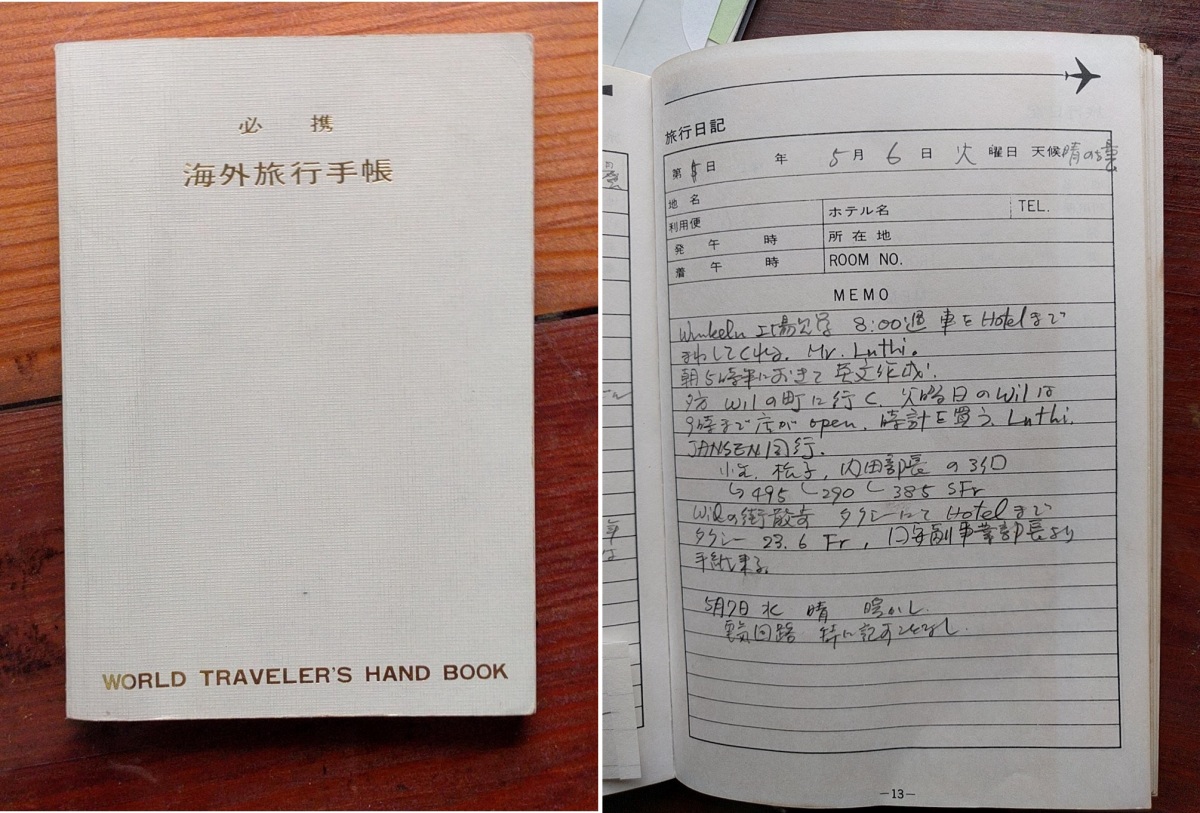 必 携
海外旅行手帳
WORLD TRAVELER'S HAND BOOK
旅行日記
第 日 年 5月 6日 火曜日 天候 晴のち曇
地名
利用便
発 午 時
着 午 時
ホテル名 TEL.
所在地
ROOM NO.
MEMO
Winkeln 工場見学 8:00過 車をHotelまで
まわしてくれる。 Mr. Luthi。
朝5時半におきて英文作成!
夕方 Wilの町に行く 火曜日のWilは
9時まで店がopen. 時計を買う. Luthi,
JANSEN同行.
松子, 内田部長 の3個
495 290 385 SFr
Wilの街散奇 タクシーにてHotelまで
タクシー 23.6 Fr, 副事業部長より
手紙来る。
5月7日 水 晴 暖かし.
電気回路 特に記すことなし.
—13—